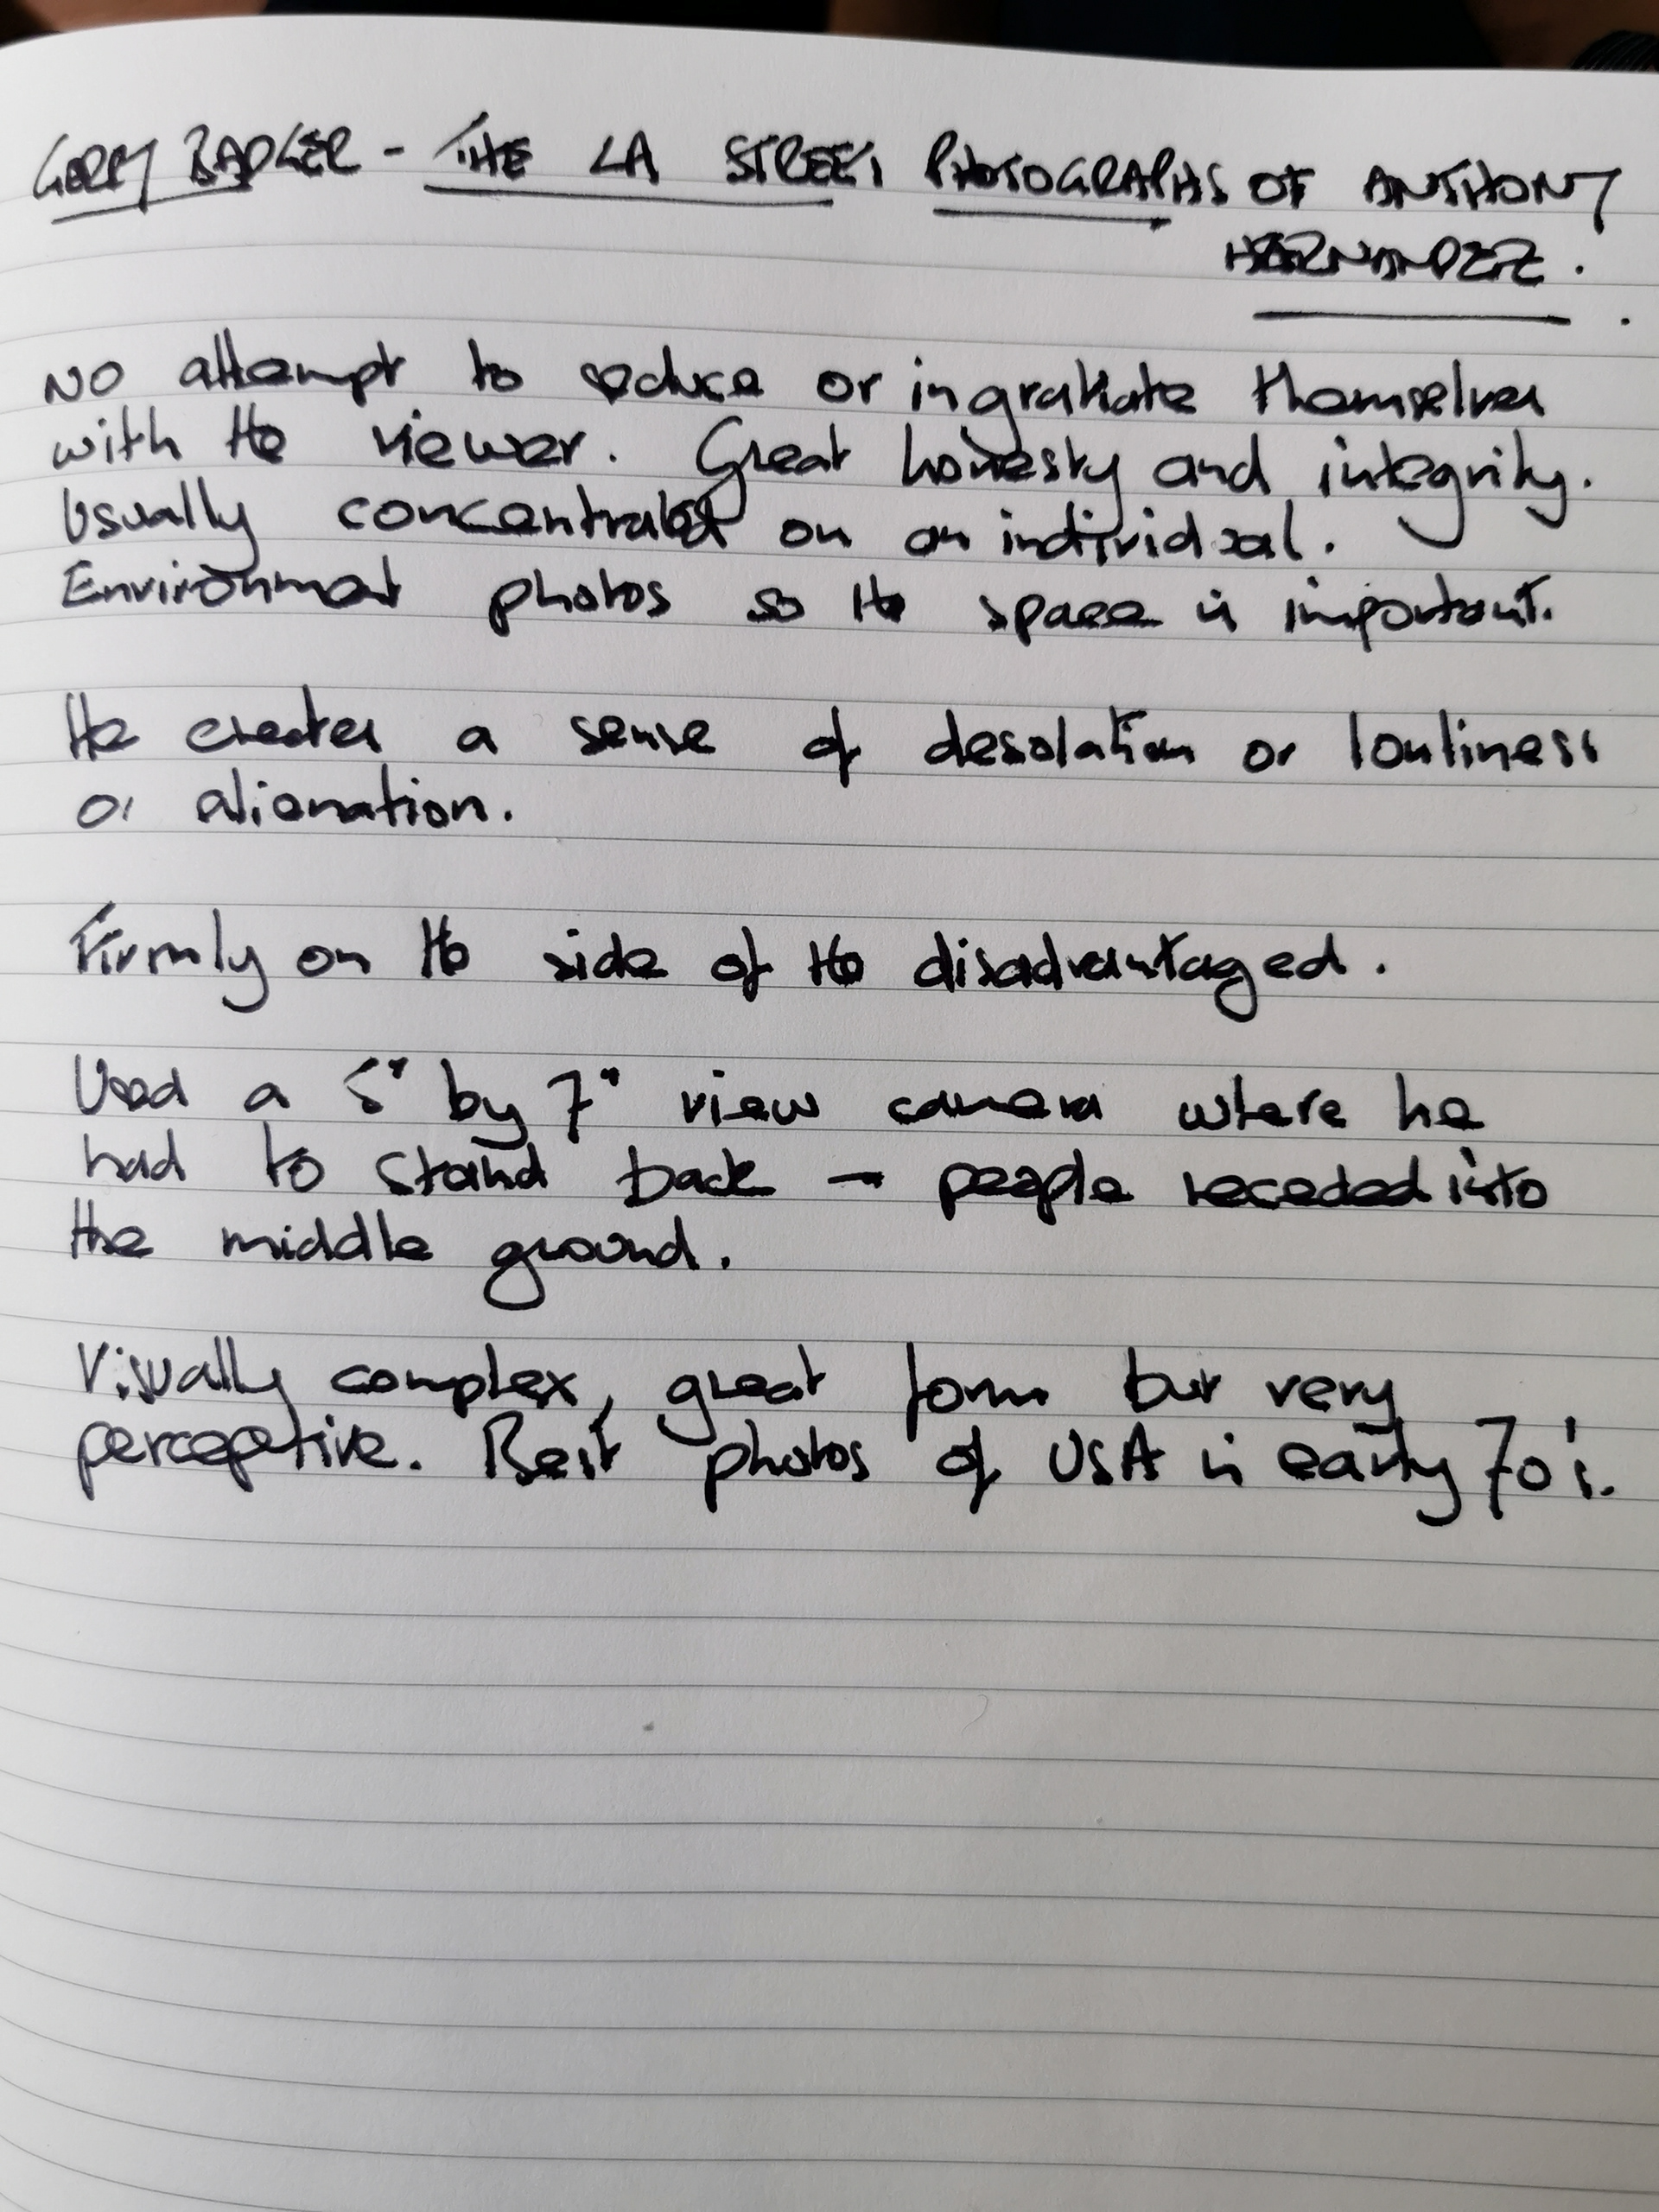 GERRY BADGER - THE LA STREET PHOTOGRAPHS OF ANTHONY
HERNANDEZ.
NO attempt to seduce or ingratiate themselves
with the viewer. Great honesty and integrity.
Usually concentrates on an individual.
Environment photos so the space is important.
He creates a sense of desolation or lonliness
or alienation.
Firmly on the side of the disadvantaged.
Used a 5" by 7" view camera where he
had to stand back - people receded into
the middle ground.
Visually complex, great form but very
perceptive. Best photos of USA in early 70's.